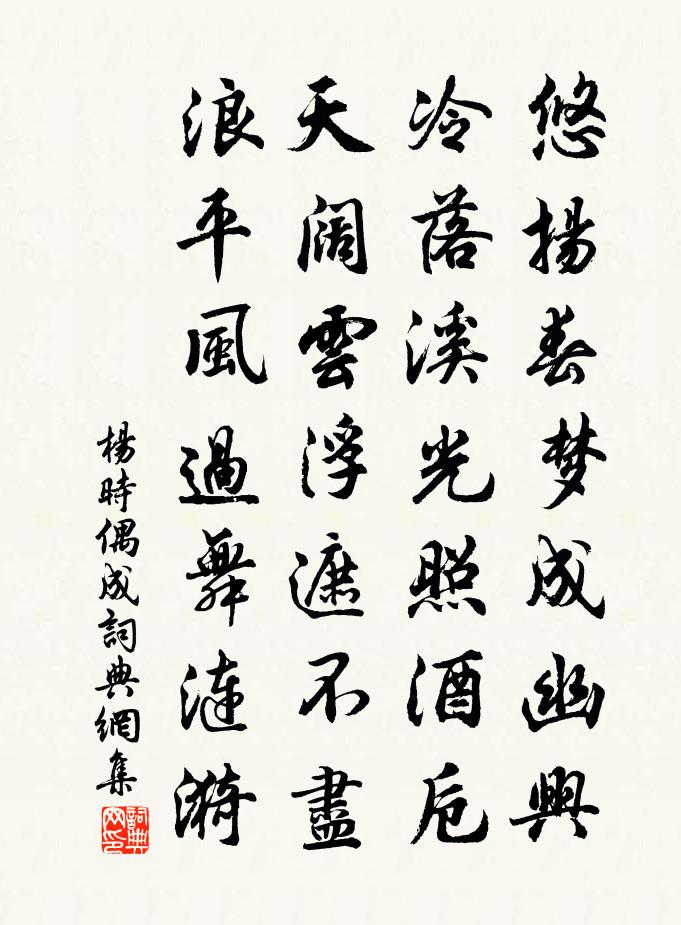 悠揚春梦成幽興
冷落溪光照酒卮
天阔雲浮遮不盡
浪平風過舞漣漪
楊時偶成詞典網集
詞典網印